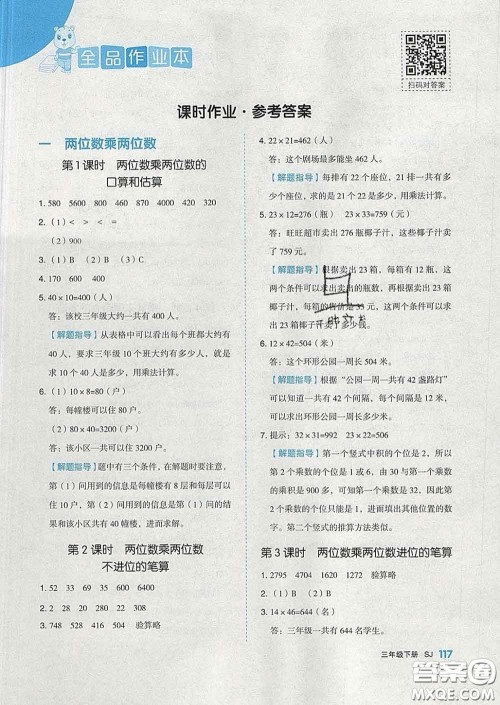 全品作业本
扫码对答案
课时作业·参考答案
一 两位数乘两位数
第1课时 两位数乘两位数的
口算和估算
1. 580 5600 800 460 870 420 320
2. (1) < > < =
(2) 900
3. (1) B (2) A
4. 170 600 400
5. 40×10=400(人)
答：该校三年级大约一共有 400 人。
【解题指导】从表格中可以看出每个班都大约有
40 人，要求三年级 10 个班大约有多少人，就是
求 10 个 40 人是多少，用乘法计算。
6. (1) 10×8=80(户)
答：每幢楼可以住 80 户。
(2) 80×40=3200(户)
答：该小区一共可以住 3200 户。
【解题指导】题中有三个条件，在解题时要注意，
第(1)问用到的信息是每幢楼有 8 层和每层可
以住 10 户；第(2)问用到的信息是每幢楼住的
户数和该小区共有 40 幢楼，进而求解。
第2课时 两位数乘两位数
不进位的笔算
1. 52 33 69 35 600 6400
2. (1) B (2) A
3. 748 528 416 504 验算略
4. 22×21=462(人)
答：这个剧场最多能坐 462 人。
【解题指导】每排有 22 个座位，有 21 排，求一共有
多少个座位，求的是 21 个 22 是多少，用乘法计算。
5. 23×12=276(瓶) 23×33=759(元)
答：旺旺超市卖出 276 瓶椰子汁，卖出这些椰子汁卖
了 759 元。
【解题指导】根据卖出 23 箱，每箱有 12 瓶，这
两个条件可以求出卖出的瓶数，再根据卖出 23 箱
椰子汁，每箱的售价是 33 元，这两个条件可以求
出 23 箱椰子汁卖了多少钱。
6. 12×42=504(米)
答：这个环形公园一周长 504 米。
【解题指导】根据“公园一周一共有 42 盏路灯”
可知一周共有 42 个间隔，每个间隔是 12 米，可
以求出环形公园一周长多少米。
7. 提示：32×31=992 23×42=966
【解题指导】第一个竖式中积的个位是 2，所以
第 2 个乘数的个位是 1 或 6，由 30 与第一个乘数
的乘积是 900 多，可知第一个乘数是 32，因此
第 2 个乘数的个位是 1，进而填出其他位置的数
字。第二个竖式的推算方法类似。
第3课时 两位数乘两位数进位的笔算
1. 2795 4704 1620 1272 验算略
2. (1) B (2) B
3. 14×46=644(人)
答：三年级一共有 644 名学生。
三年级下册 SJ 117
答案圈
MXQE.COM